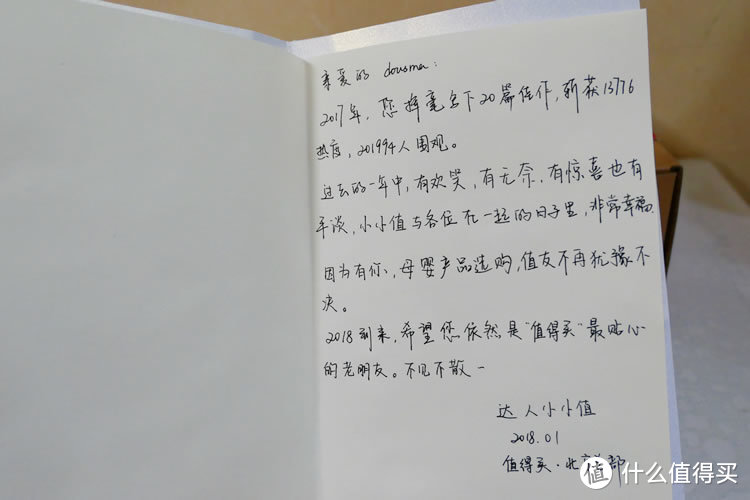 亲爱的 dousma：
2017年，您挥毫写下20篇佳作，斩获13776
热度，201994人围观。
过去的一年中，有欢笑，有无奈，有惊喜也有
平淡，小小值与各位在一起的日子里，非常幸福
因为有你，母婴产品选购，值友不再犹豫不
决。
2018到来，希望您依然是"值得买"最贴心
的老朋友。不见不散~
达人小小值
2018.01
值得买·北京总部
值 什么值得买